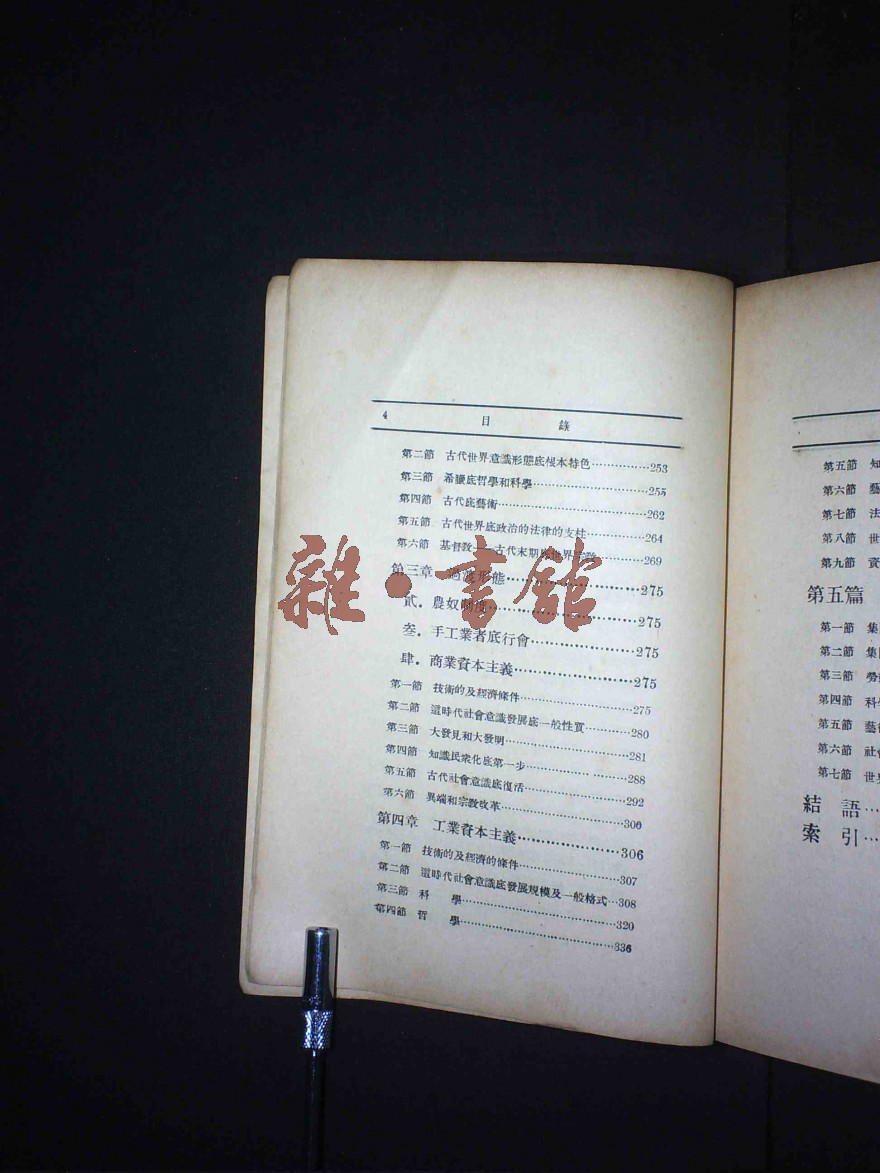 4 目錄
第二節 古代世界意識形態底根本特色……………253
第三節 希臘底哲學和科學……………255
第四節 古代底藝術……………262
第五節 古代世界底政治的法律的支柱……………264
第六節 基督教——古代末期底世界宗教……………269
第三章 過渡形態……………275
貳.農奴制度……………275
叁.手工業者底行會……………275
肆.商業資本主義……………275
第一節 技術的及經濟條件……………275
第二節 這時代社會意識發展底一般性質……………280
第三節 大發見和大發明……………281
第四節 知識民衆化底第一步……………288
第五節 古代社會意識底復活……………292
第六節 異端和宗教改革……………300
第四章 工業資本主義……………306
第一節 技術的及經濟的條件……………307
第二節 這時代社會意識底發展規模及一般格式…308
第三節 科學……………320
第四節 哲學……………336
雜·書館
第五節 知
第六節 藝
第七節 法
第八節 世
第九節 資
第五篇
第一節 集
第二節 集
第三節 勞
第四節 科
第五節 藝
第六節 社
第七節 世
結語…
索引…